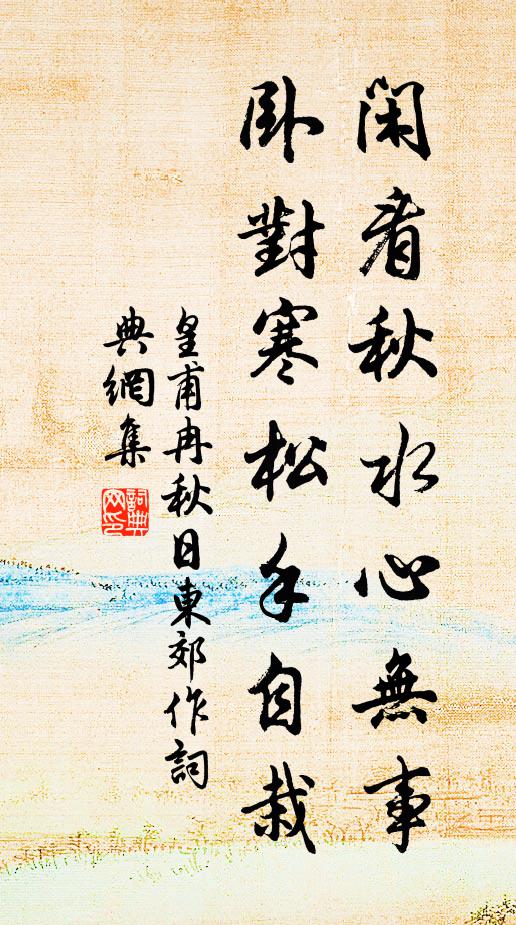 閑看秋水心無事
臥對寒松手自栽
皇甫冉秋日東郊作詞
典網集
詞典
网印